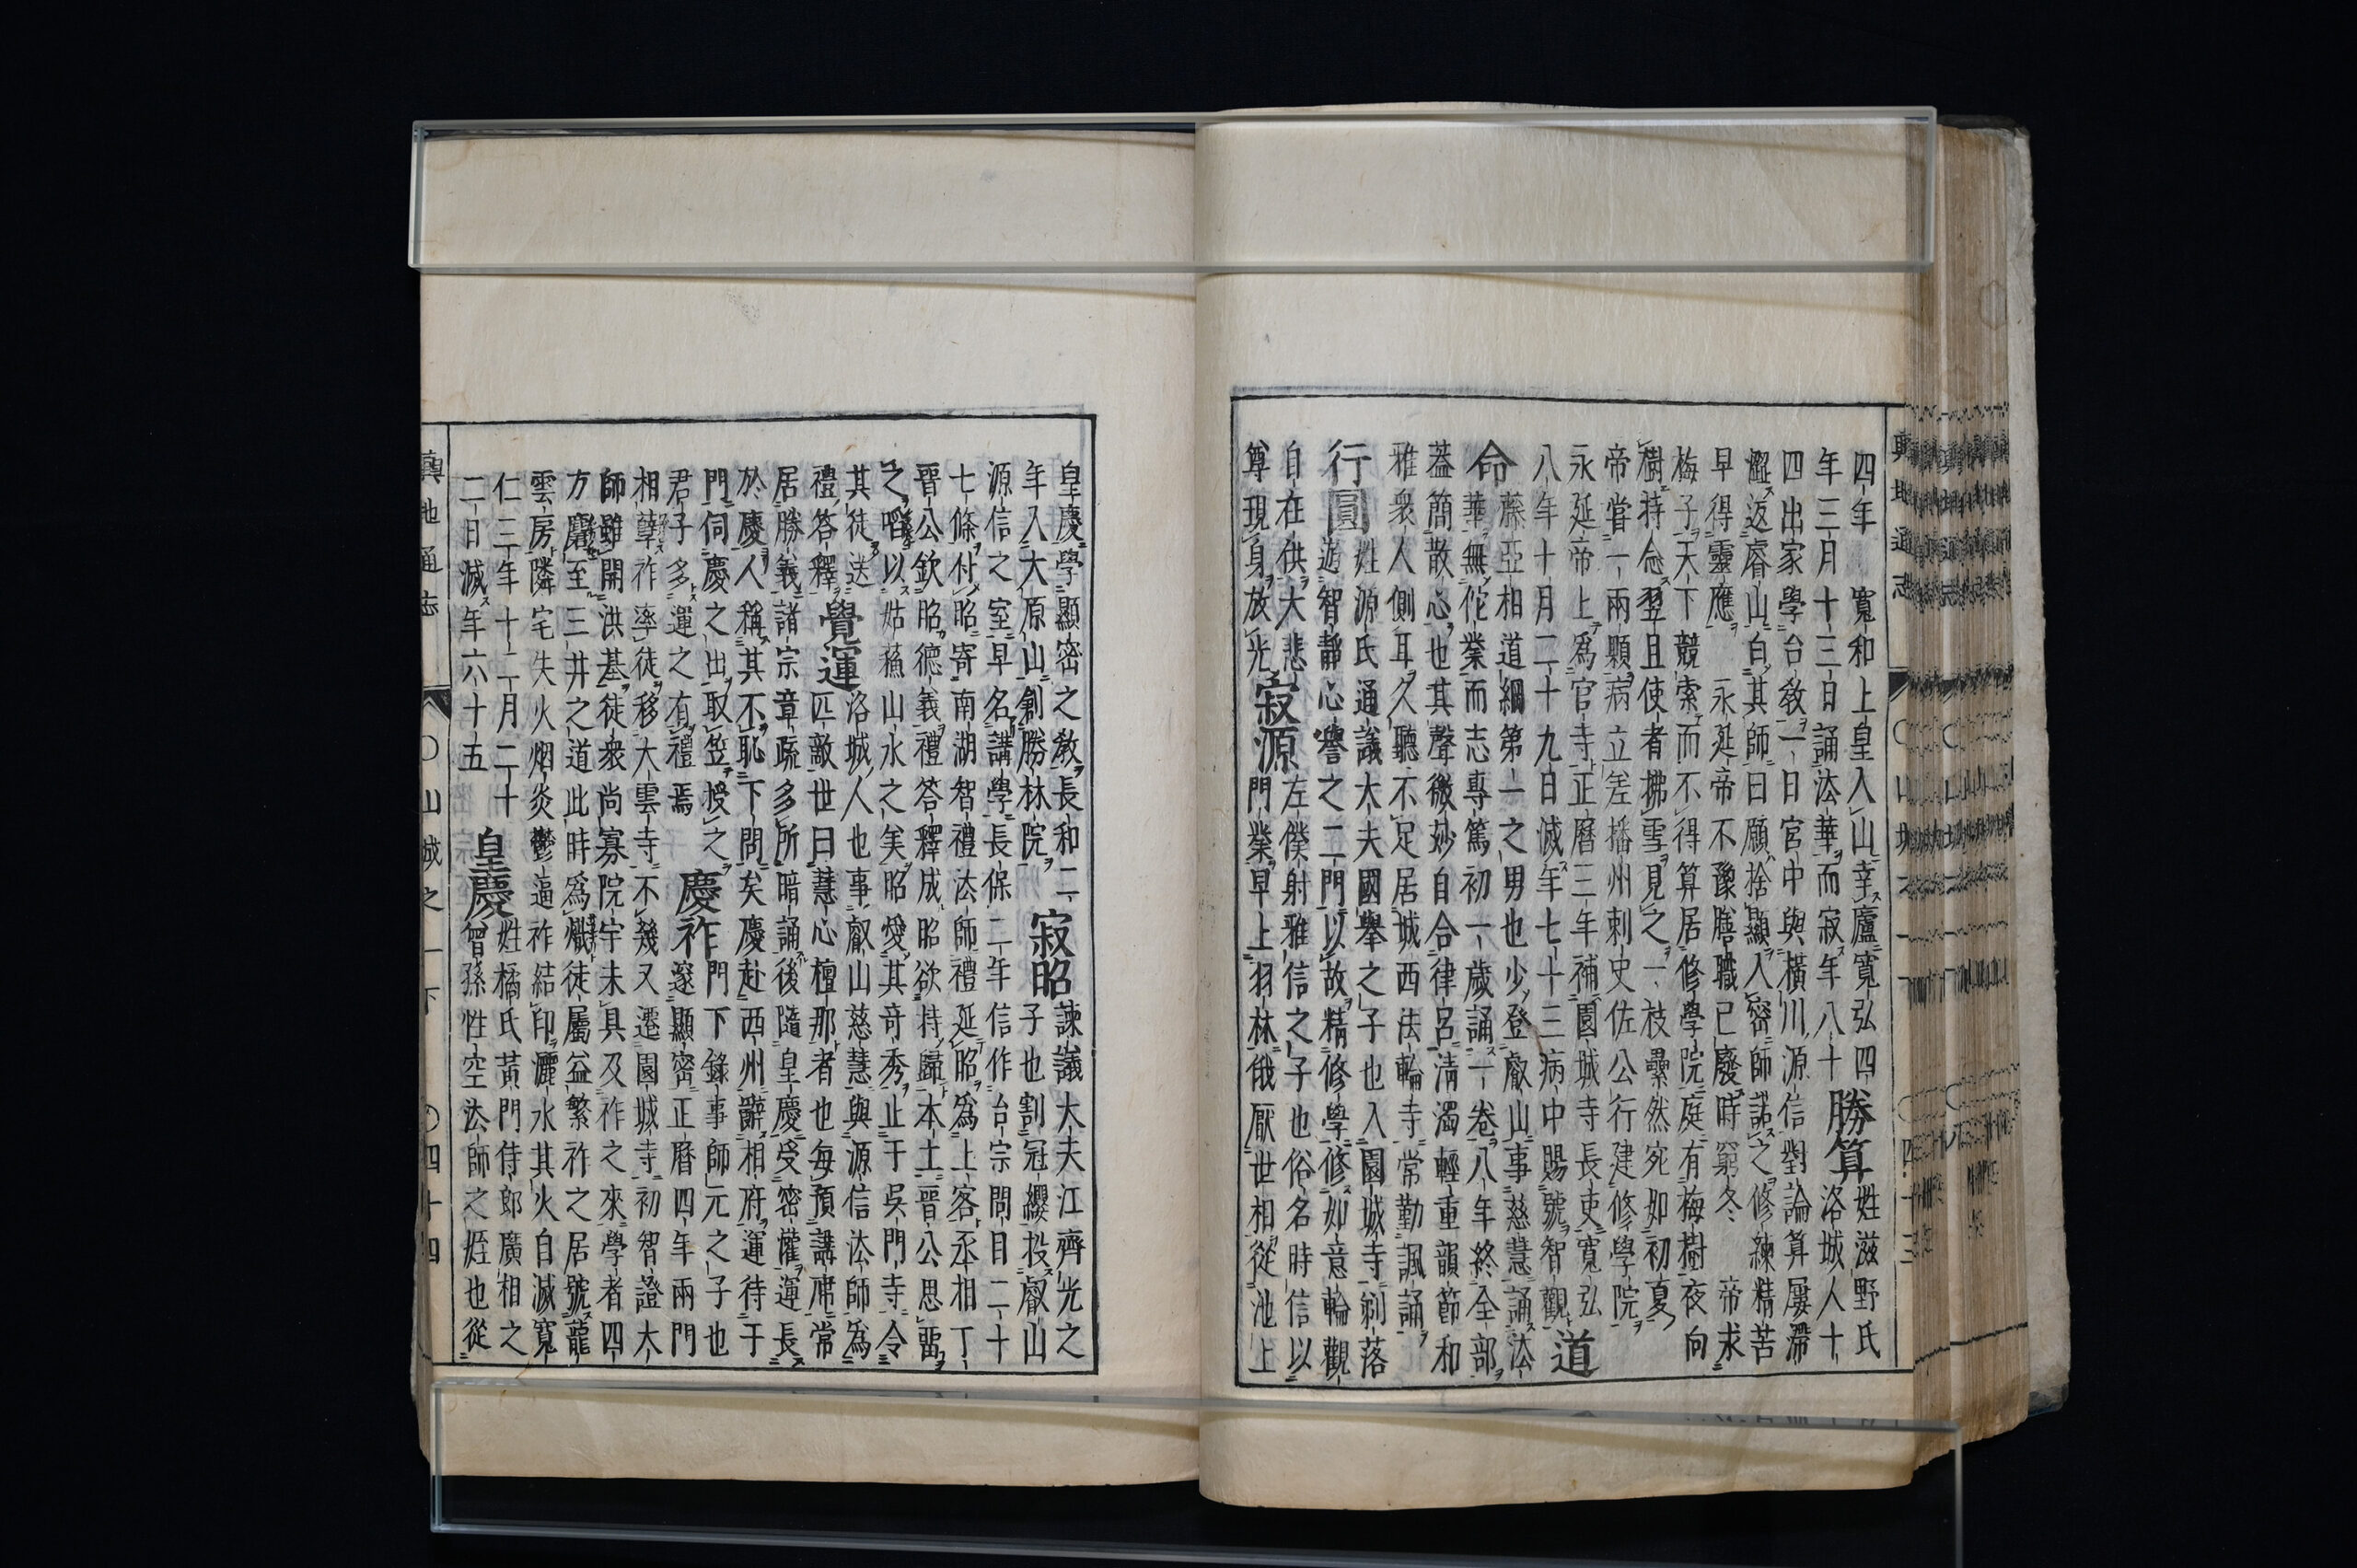 四年　寬和上皇入山幸廬寬弘四
年三月十三日誦法華而寂年八十
勝算
姓滋野氏
洛城人十
四出家學台敎一日宮中與橫川源信對論算屢滯
澀返睿山白其師曰願捨顯入密師諾之修練精苦
早得靈應　永延帝不豫膳職已廢時窮冬　帝求
梅子天下競索而不得算居修學院庭有梅樹夜向
樹持念翌旦使者拂雪見之一枝纍然宛如初夏
帝嘗一兩顆病立差播州刺史佐公行建修學院
永延帝上爲官寺正曆三年補園城寺長吏寬弘
八年十月二十九日滅年七十三病中賜號智觀
道
命
藤亞相道綱第一之男也少登叡山事慈慧誦法
華無佗業而志專篤初一歲誦一卷八年終全部
蓋簡散心也其聲微妙自合律呂淸濁輕重韻節和
雅衆人側耳久聽不足居城西法輪寺常勤諷誦
行圓
姓源氏通議大夫國舉之子也入園城寺剃落
遊智靜心譽之二門以故精修學修如意輪觀
自在供大悲
尊現身放光
寂源
左僕射雅信之子也俗名時信以
門業早上羽林俄厭世相從池上
皇慶學顯密之敎長和二
年入大原山創勝林院
寂昭
諫議大夫江齊光之
子也割冠纓投叡山
源信之室早名講學長保二年信作台宗問目二十
七條付昭寄南湖智禮法師禮延昭爲上客丞相丁
晉公欽昭德義禮答釋成昭欲持歸本土晉公思畱
之啗以姑蘇山水之美昭愛其奇秀止于吳門寺令
其徒送
禮答釋
覺運
洛城人也事叡山慈慧與源信法師爲
匹敵世曰慧心檀那者也每預講席常
居勝義諸宗章疏多所暗誦後隨皇慶受密灌運長
於慶人稱其不恥下問矣慶赴西州辭相府運待于
門伺慶之出取笠授之
君子多運之有禮焉
慶祚
門下錄事師元之子也
邃顯密正曆四年兩門
相孼祚率徒移大雲寺不幾又遷園城寺初智證大
師雖開洪基徒衆尚寡院宇未具及祚之來學者四
方麕至三井之道此時爲熾徒屬益繁祚之居號龍
雲房隣宅失火烟炎鬱逼祚結印灑水其火自滅寬
仁三年十二月二十
二日滅年六十五
皇慶
姓橘氏黃門侍郎廣相之
曾孫性空法師之姪也從
輿地通志
〇山城之一下
〇四十四